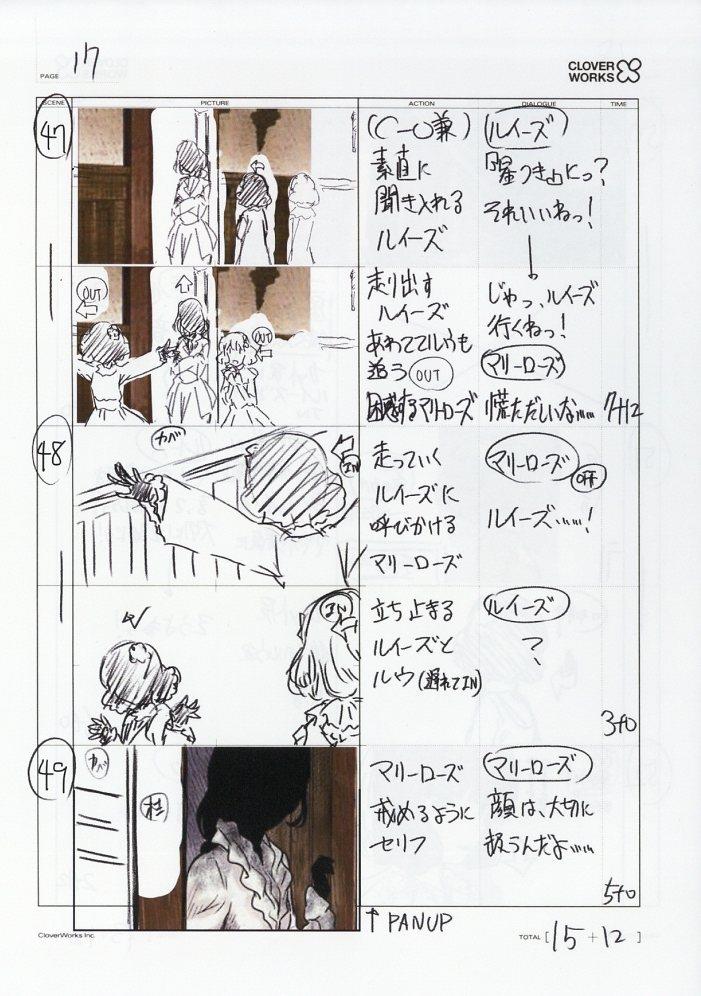 PAGE 17
CLOVER
WORKS
SCENE PICTURE ACTION DIALOGUE TIME
47
(C-○兼)
素直に
聞き入れる
ルイーズ
ルイーズ
それいいねっ!
OUT
OUT
走り出す
ルイーズ
あわててルウも
追う OUT
困惑するマリーローズ
じゃっ、ルイーズ
行くねっ!
マリーローズ
慌ただしいな……
7+12
48
カバ
IN
走っていく
ルイーズに
呼びかける
マリーローズ
マリーローズ
OFF
ルイーズ……!
IN
立ち止まる
ルイーズと
ルウ(遅れてIN)
ルイーズ
?
3+0
49
カバ
マリーローズ
戒めるように
セリフ
マリーローズ
顔は、大切に
扱うんだよ……
5+0
↑PAN UP
CloverWorks Inc.
TOTAL [ 15 + 12 ]